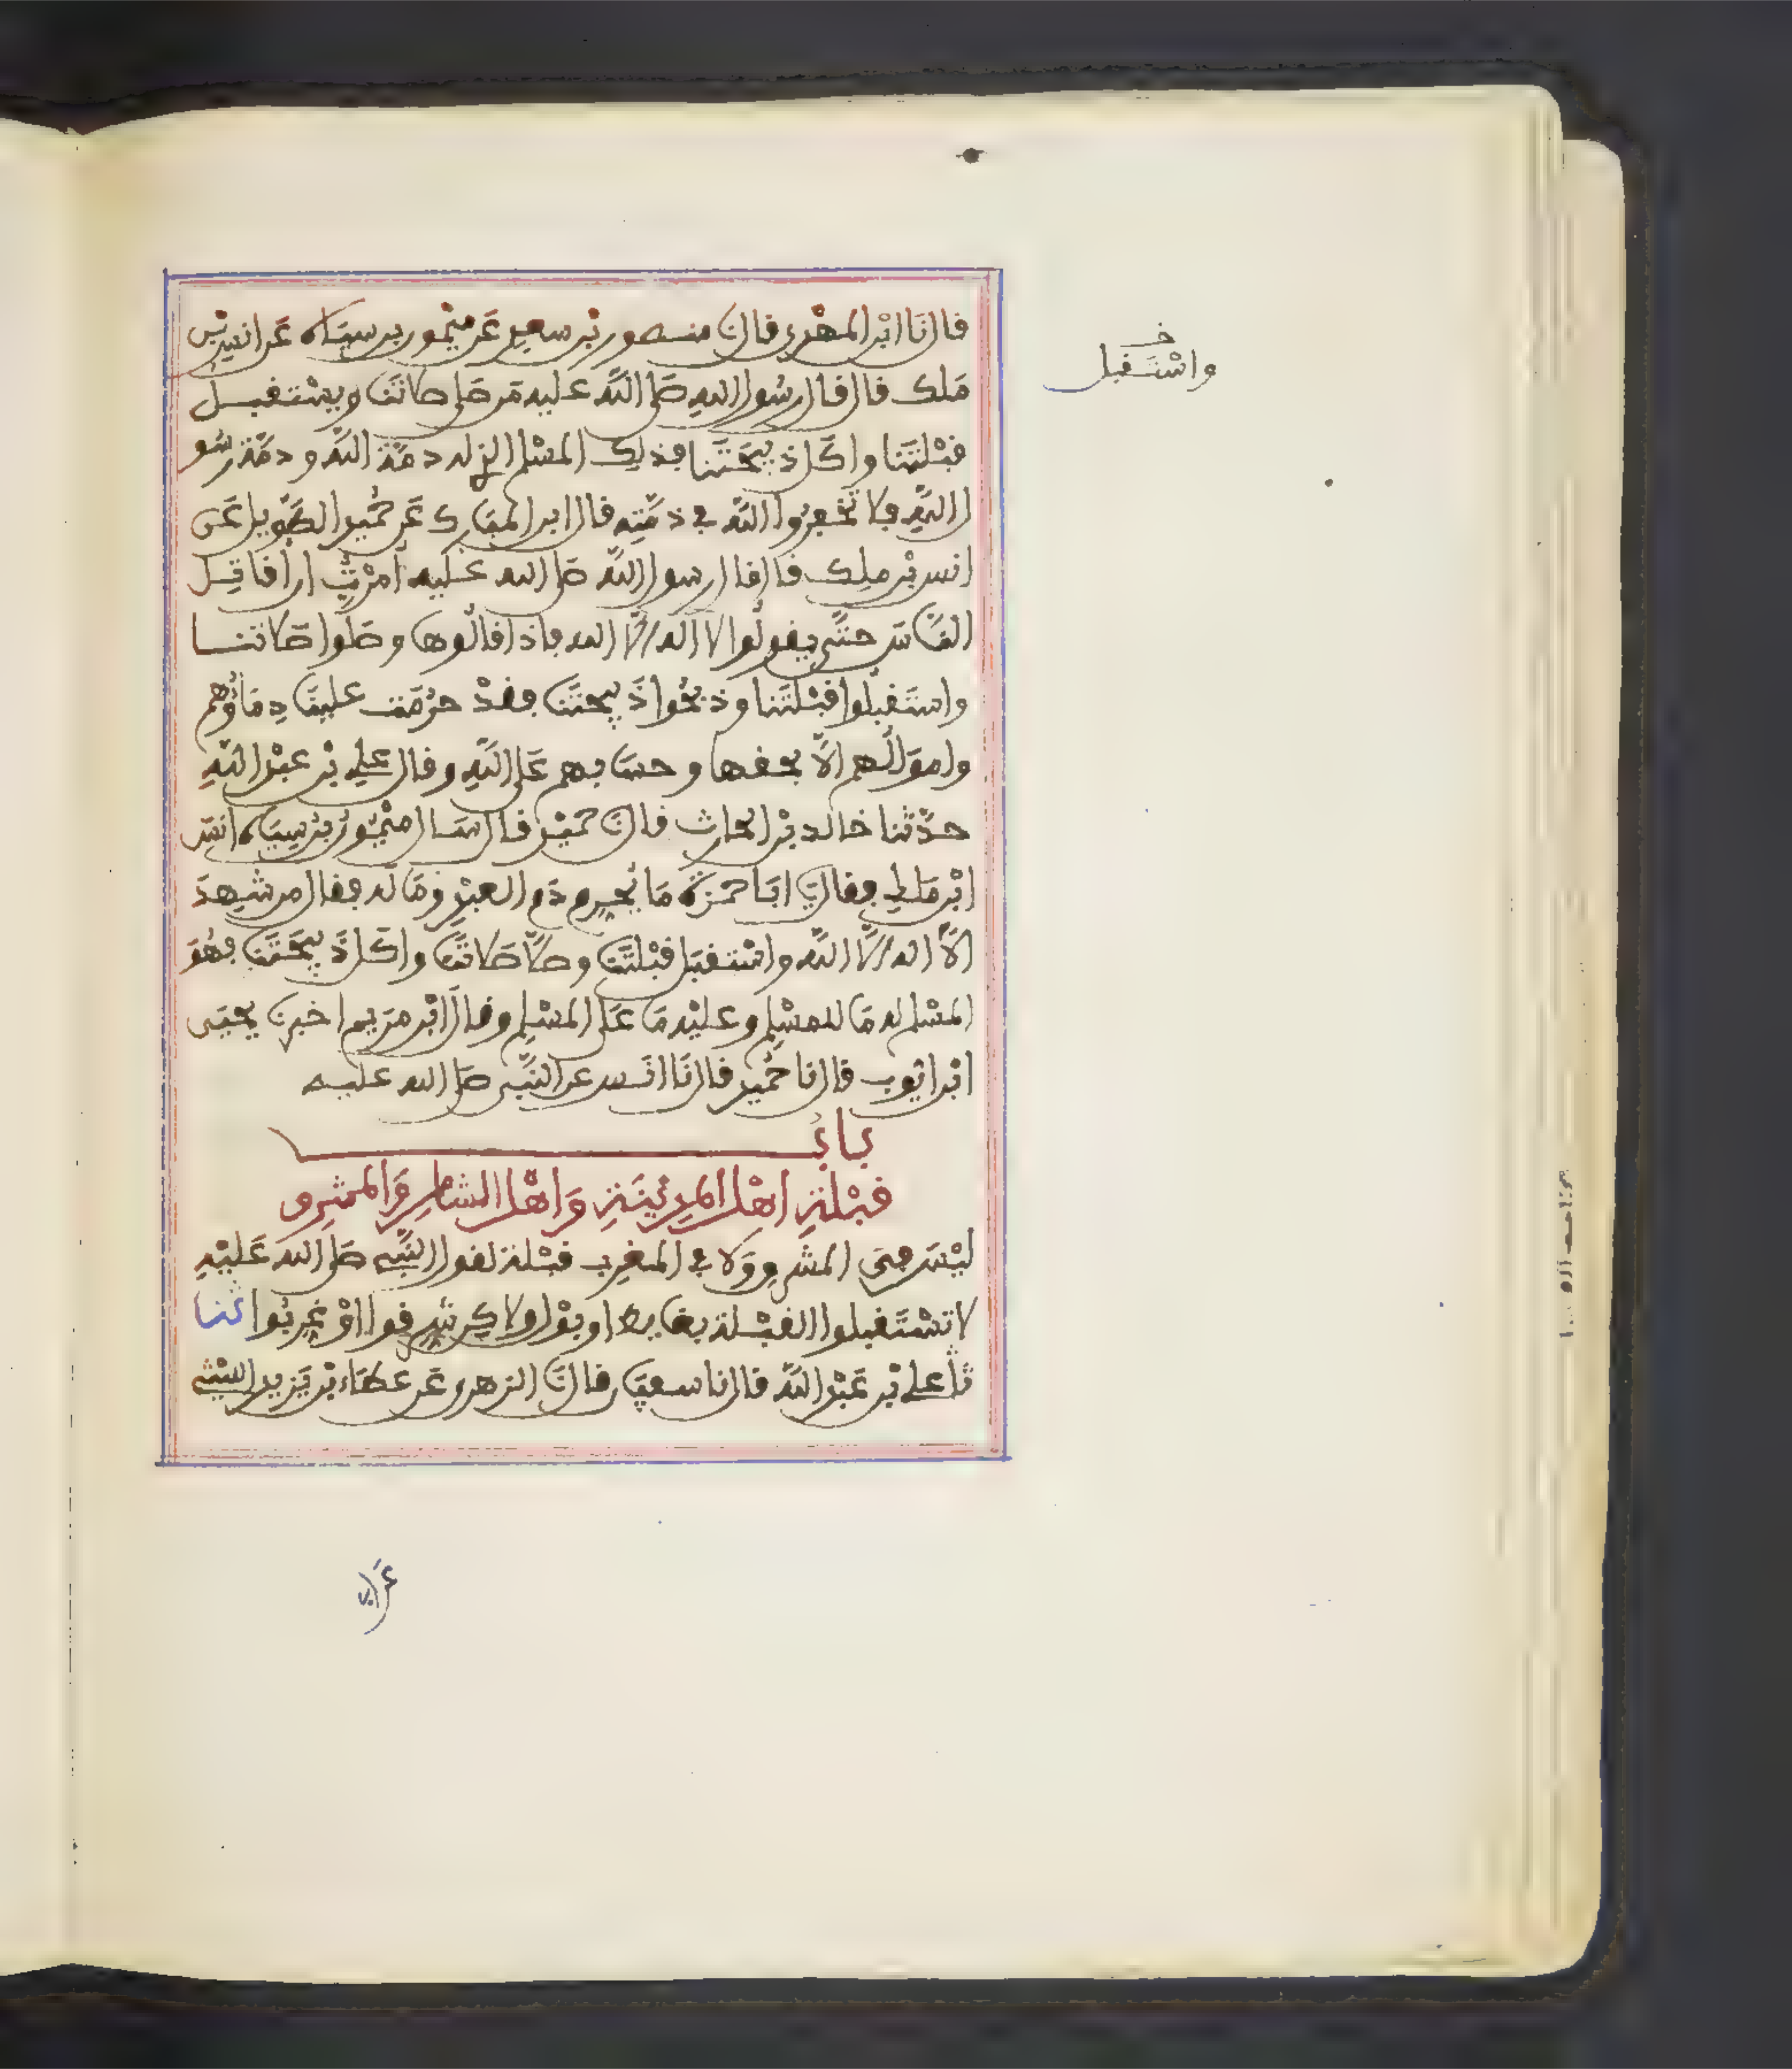 قال نَا ابْن المهْدي قال نَا منصور بْن سعد عَن ميْمون بن سِيَاه عَن انس بْن
مَلك قال قال رسُول الله صَلى اللَّه عليه مَن صَلى صلاتَنَا ويسْتقبل
قبْلتَنا واكَل ذبيحَتَنا فذلك المسْلم الذي له ذمّة اللَّه وذمّة رسُو
ل اللَّهِ فلا تُخْفِرُوا اللَّه في ذمّتِه قال ابن المبَارك عَن حُمَيْد الطَّويل عَن
انس بْن ملِك قال قال رسول اللَّه صَلى الله عَليه أمرْتُ ان أقاتِل
النَّاسَ حتَّى يقولُوا لا اله الاَّ الله فاذا قالُوها وصَلَّوا صَلاتنا
واستَقبلُوا قبْلتَنا وذبحُوا ذَبيحتَنَا فقدْ حرُمَت علينَا دِمَاؤُهم
وامْوَالُهم الاَّ بحقها وحسَابهم عَلى اللَّهِ وقال علي بْن عبْد اللَّهِ
حدَّثنا خالد بْن الحارث قال نَا حميْد قال سَال ميْمُونُ بْن سِيَاه انسَ
ابْن مَلك فقال يَا ابَا حمزةَ مَا يُحرِم دَم العبْدِ ومَاله فقال من شهِدَ
الاَّ اله الاَّ اللَّه واسْتقبَل قبْلتَنَا وصَلَّا صَلاتَنَا واكَل ذَبيحَتَنَا فهُوَ
المسْلم له مَا للمسْلِم وعليْه مَا عَلى المسْلِم وقال ابْن مرَيم اخبرنَا يحيَى
ابْن ايّوب قال نا حُميد قال نَا انَس عن النَّبِي صَلى الله عليه
بابُ
قبْلةِ اهْل المدِينَةِ وَاهْل الشامِ وَالمشرِق
ليْسَ في المشرِق وَلا في المغرِب قبْلة لقول النَّبِيِّ صَلى الله عَليْهِ
لا تسْتَقبلوا القبْلة بغايط او بوْل ولاكِن شرِّقوا اوْ غرِّبُوا ثنا
نا علي بْن عَبْد اللَّه قال نا سفيَان قال نَا الزهري عَن عطَاء بْن يَزيد الليْثي
خ
واسْتَقبل
عَن ابي